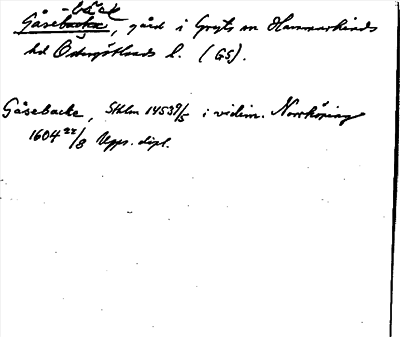 -bäck
Gåsebacka, gård i Gryts sn Hammarkinds
hd Östergötlands l. (GS).
Gåsebacke, Sthlm 1453 9/5 i vidim. Norrköping
1604 22/8 Upps. dipl.